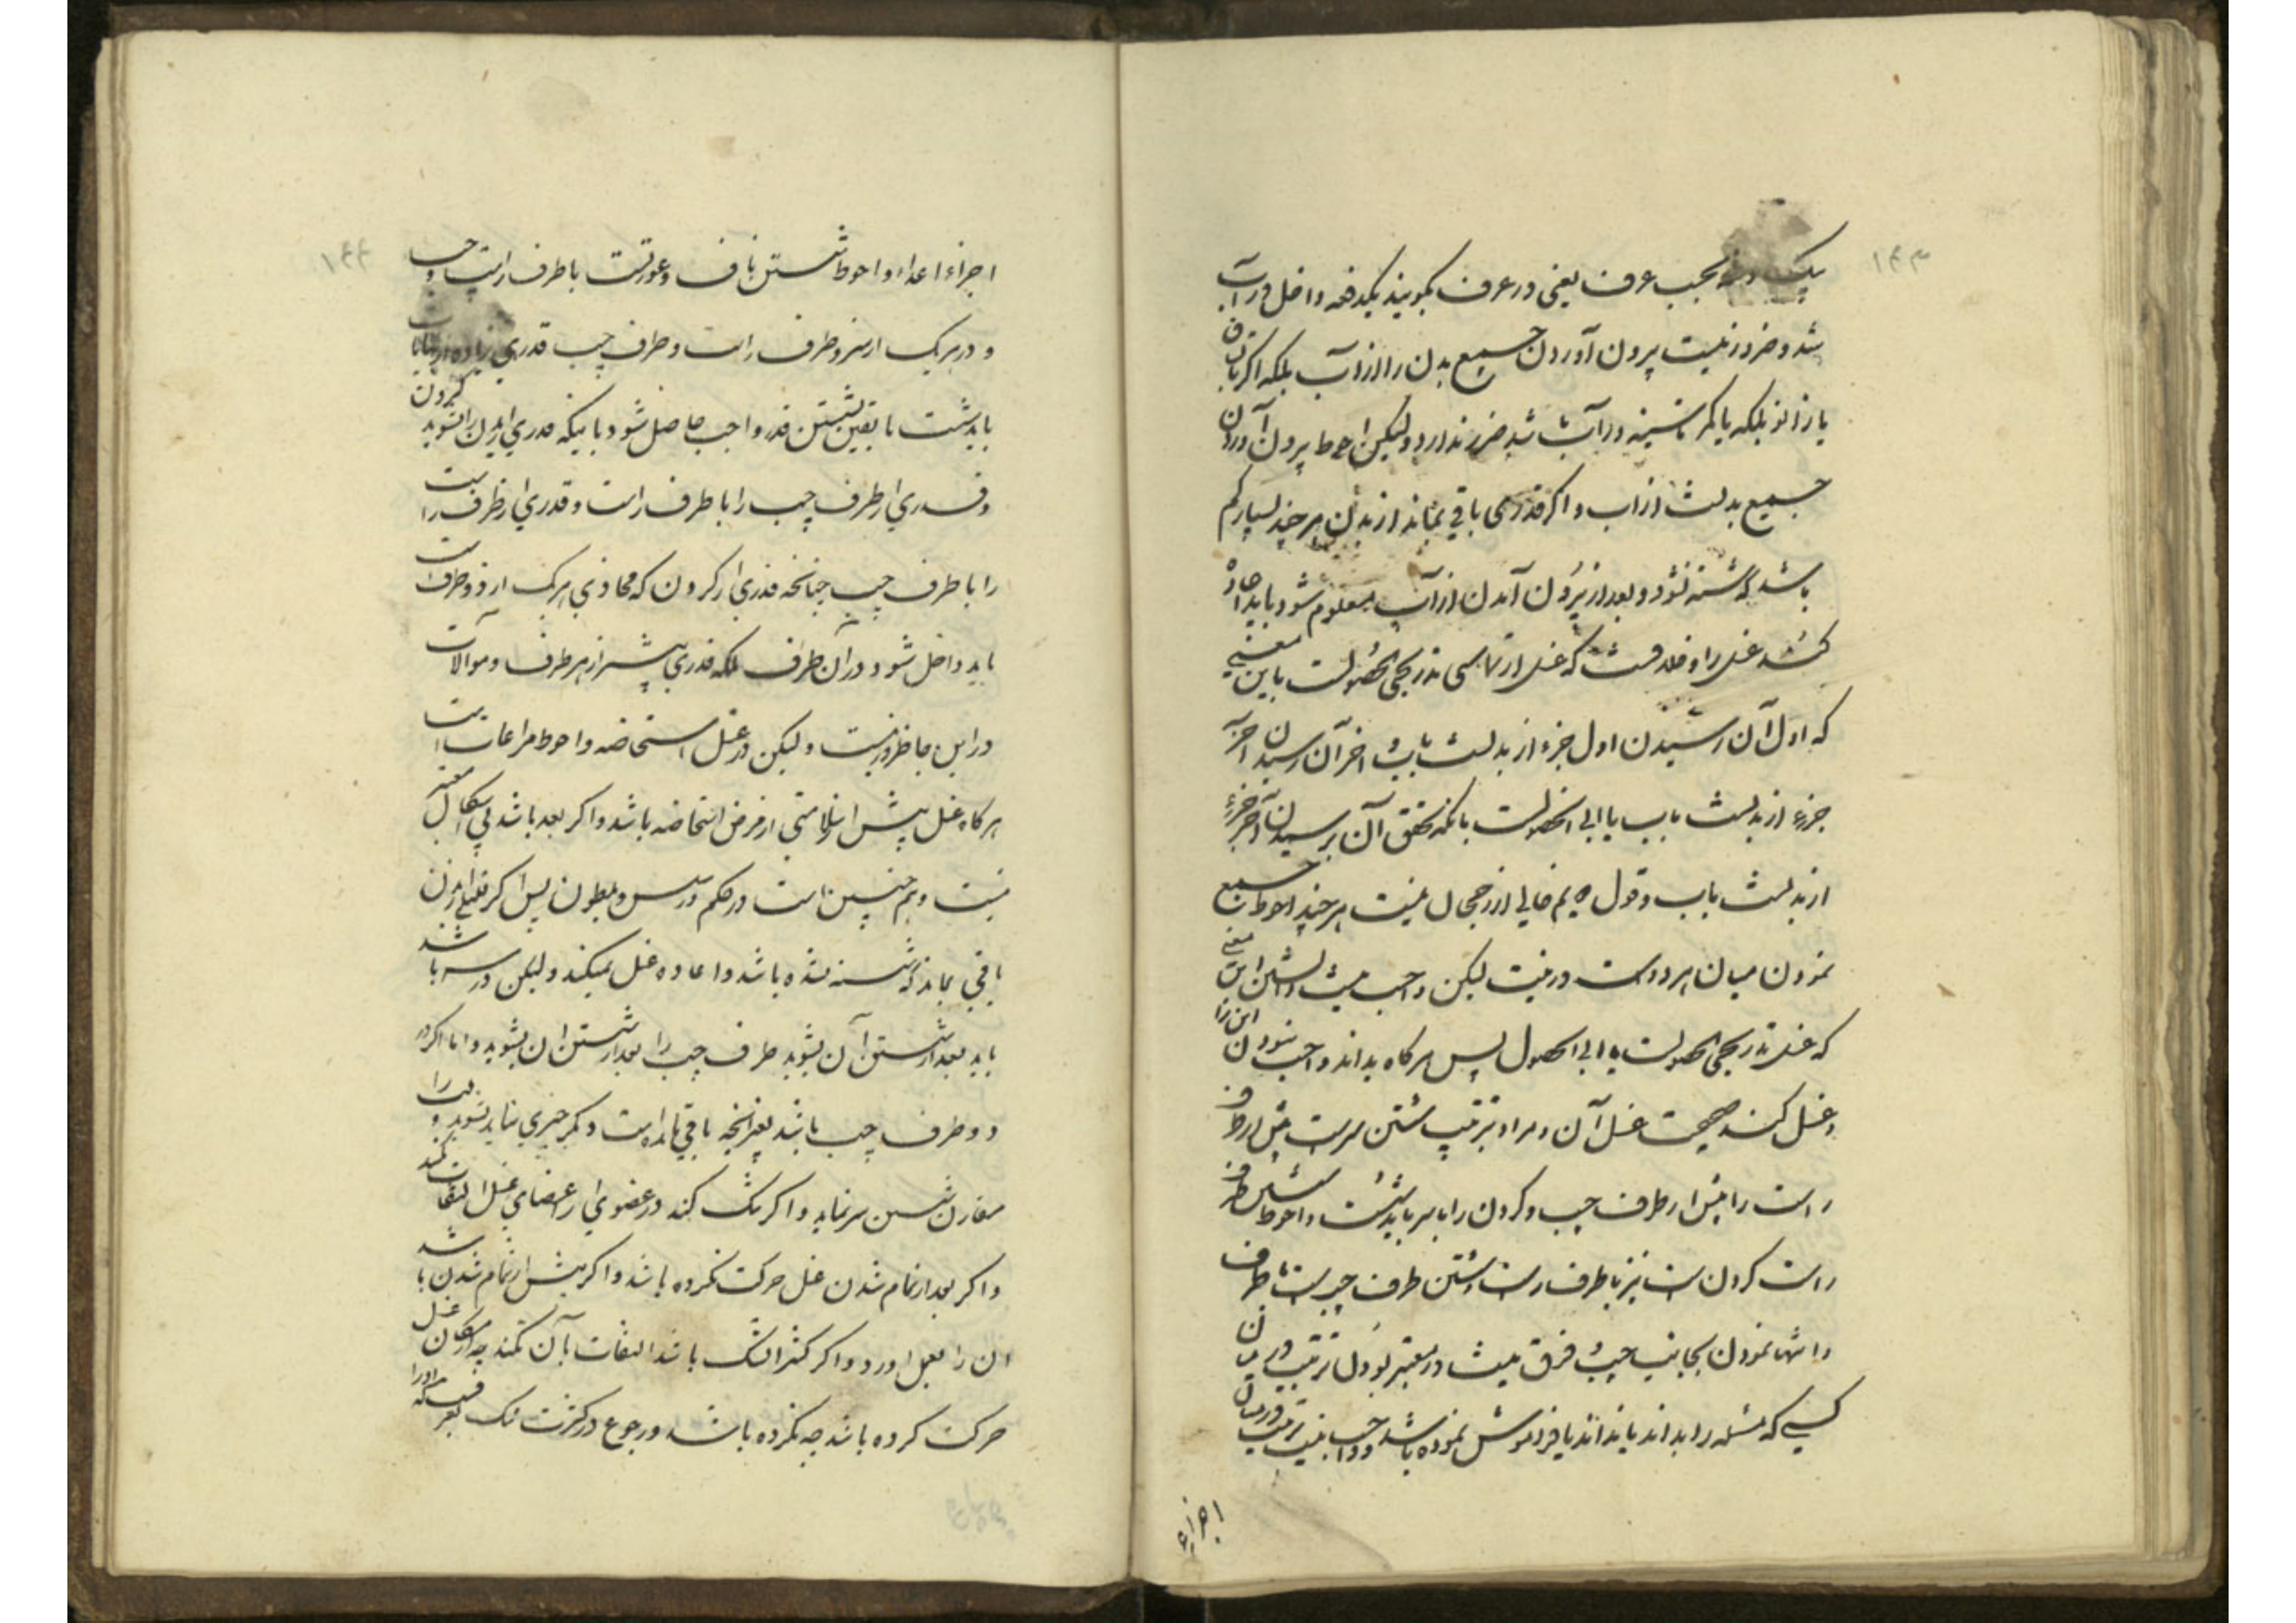 ۱۴۳
یک دفعه بحسب عرف یعنی در عرف بگویند یکدفعه داخل در آب
شد و ضرور نیست بیرون آوردن جمیع بدن را از آب بلکه اگر تا ساق
یا زانو بلکه یا کمر تا سینه در آب باشد ضرر ندارد ولیکن احوط بیرون آوردن
جمیع بدنست از آب و اگر قدری باقی بماند از بدن هر چند بسیار کم
باشد که شسته نشود و بعد از بیرون آمدن از آب معلوم شود باید اعاده
کند غسل را و خلافست که غسل ارتماسی تدریجی الحصولست باین معنی
که اول آن رسیدن اول جزء از بدنست بآب و آخر آن رسیدن آخر
جزء از بدنست بآب یا آنی الحصولست بآنکه تحقق آن برسیدن آخر جزء
از بدنست بآب و قول دویم خالی از رجحان نیست هر چند احوط جمیع
نمودن میان هر دو است در نیت لیکن واجب نیست دانستن این معنی
که غسل تدریجی الحصولست یا آنی الحصول پس هر گاه بداند واجب بودن این را
و غسل کند صحیحست غسل آن و مراد بترتیب شستن سرست پیش از طرف
راست را پیش از طرف چپ و گردن را با سر باید شست و احوط شستن طرف
راست گردن است نیز با طرف راست و شستن طرف چپ است با طرف
و انتها نمودن بجانب چپ و فرق نیست در معتبر بودن ترتیب در میان
کسی که مسئله را بداند یا نداند یا فراموش نموده باشد و واجب نیست ترتیب در میان
اجزاء
۱۴۴
اجزاء اعضاء و احوط شستن ناف و عورتست با طرف راست و چپ
و در هر یک از سر و طرف راست و طرف چپ قدری زیاده از
باید شست تا یقین بشستن قدر واجب حاصل شود باینکه قدری از بدن را با گردن بشوید
و قدری از طرف چپ را با طرف راست و قدری از طرف راست
را با طرف چپ چنانچه قدری از گردن که محاذی هر یک از دو طرف است
باید داخل شود در آن طرف بلکه قدری بیشتر از هر طرف و موالات
در این جا ضرور نیست ولیکن در غسل استحاضه واحوط مراعات است
هر گاه غسل پیش از سلامتی از مرض استحاضه باشد و اگر بعد باشد بی اشکال معتبر
نیست و همچنین است در حکم در سلس و مبطون پس اگر قلیلی از بدن
باقی بماند که شسته نشده باشد و اعاده غسل نمیکند ولیکن در سر باشد
باید بعد از شستن آن بشوید طرف چپ را بعد از شستن آن بشوید و اما اگر در
دو طرف چپ باشد بغیر آنچه باقی مانده است دیگر چیزی نباید بشوید و نیت را
مقارن شستن سر نماید و اگر شک کند در عضوی از اعضای غسل التفات نکند
و اگر بعد از تمام شدن غسل حرکت نکرده باشد و اگر پیش از تمام شدن باشد
آن را بعمل آورد و اگر کثیر الشک باشد التفات بآن نکند چه از مکان غسل
حرکت کرده باشد چه نکرده باشد و رجوع در کثرت شک بعرفست که او را